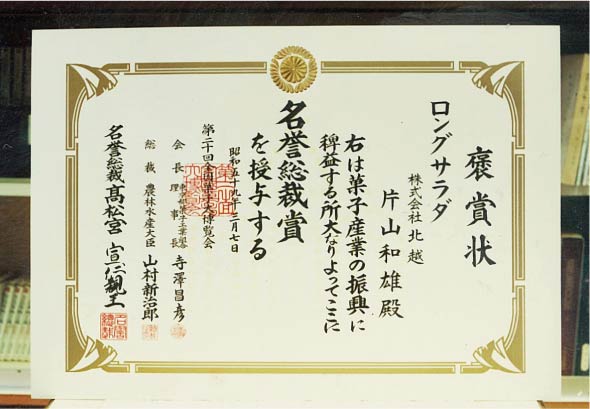 褒賞状
ロングサラダ
株式会社 北越
片山和雄殿
右は菓子産業の振興に
稗益する所大なりよってここに
名誉総裁賞
を授与する
昭和五十九年二月七日
第二十回全国菓子大博覧会
会長
理事長 寺澤昌彦
総裁 農林水産大臣 山村新治郎
名誉総裁 高松宮 宣仁親王